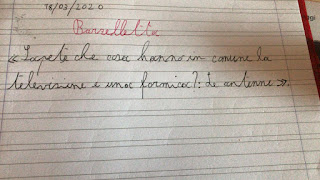 18/03/2020
Barzelletta
« Sapete che cosa hanno in comune la
televisione e una formica?: Le antenne ».